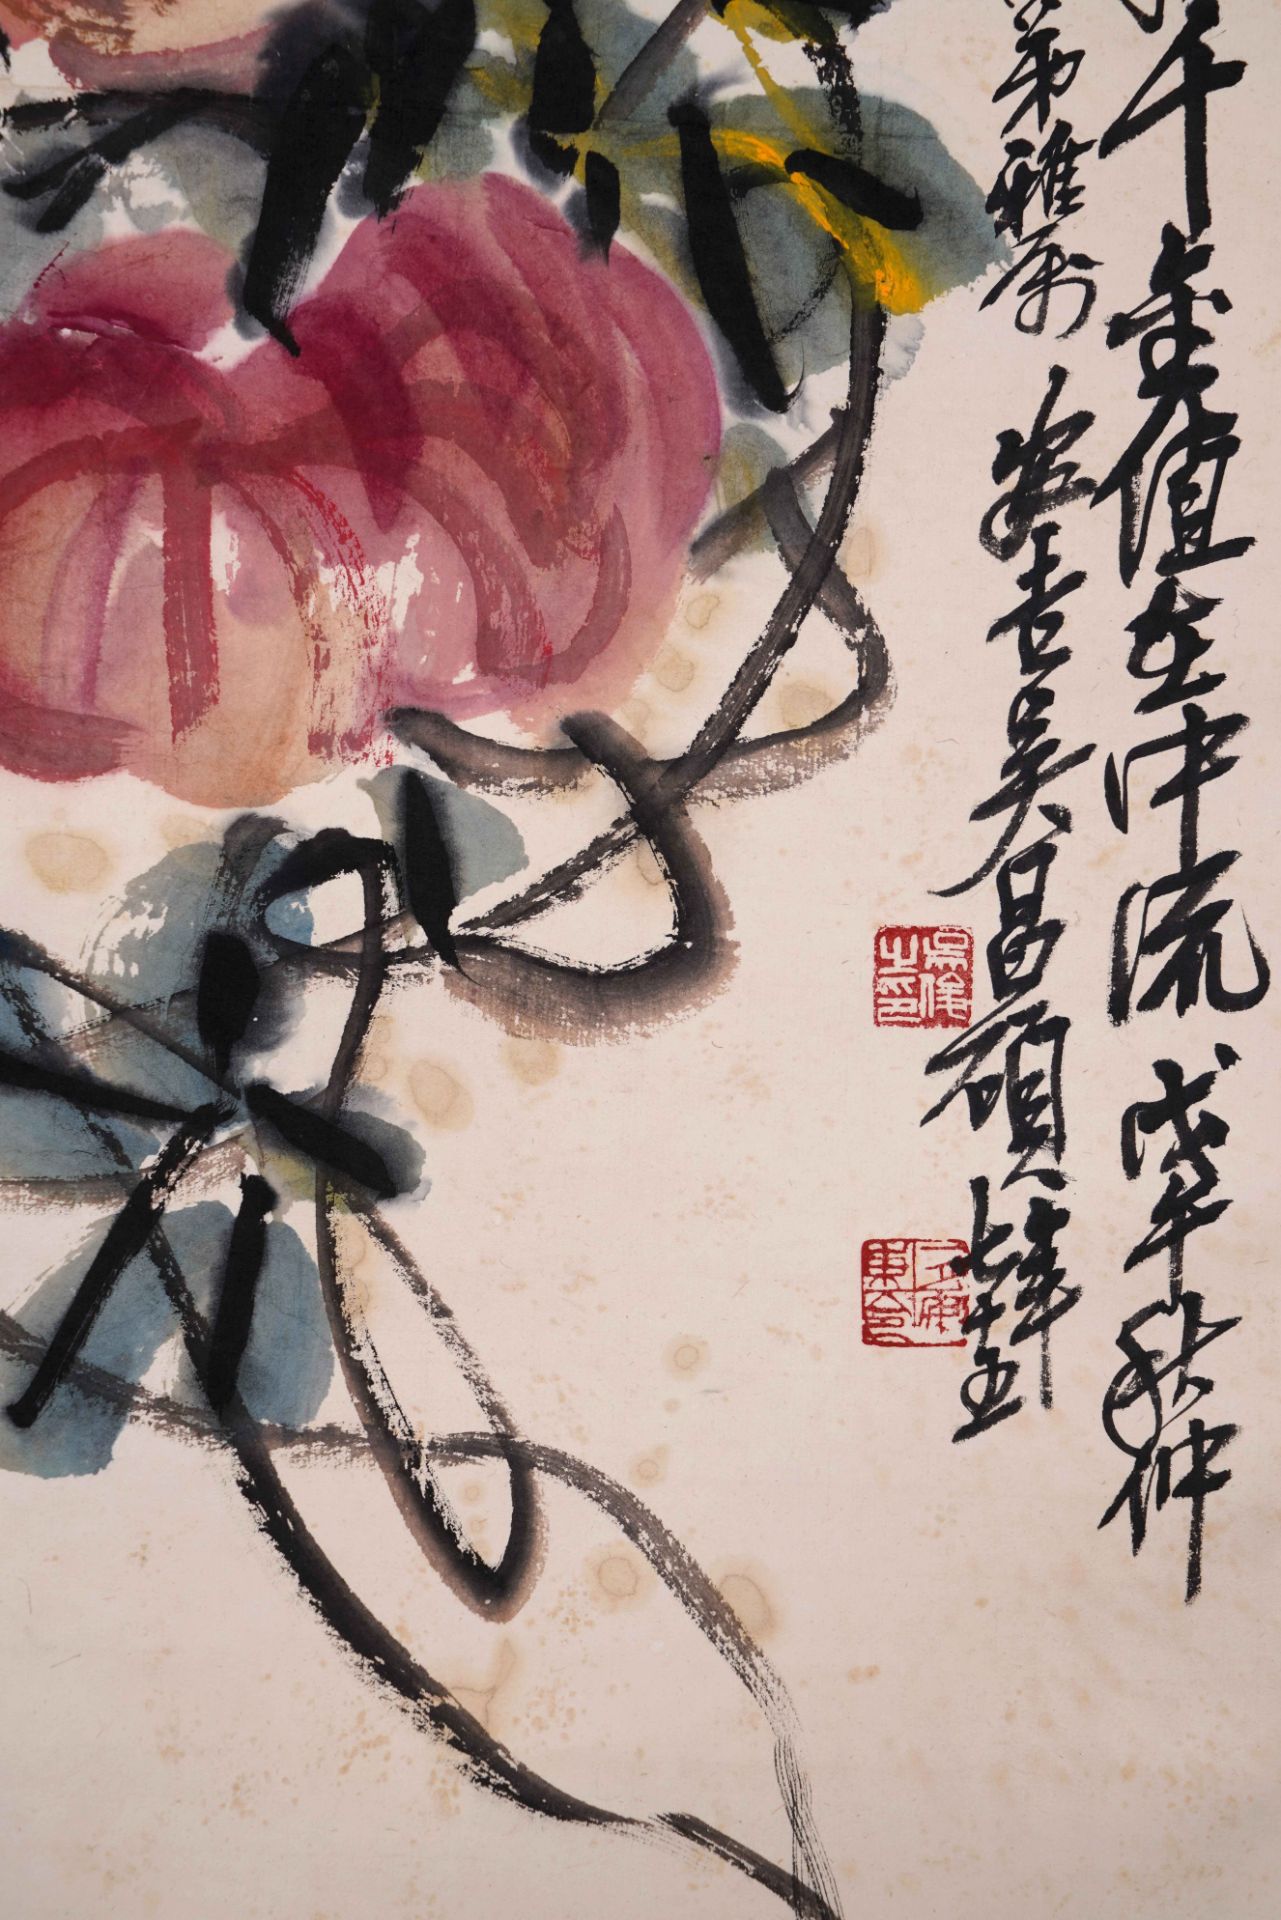 千金值在中流戊午秋仲
弟雅属安吉吴昌碩年七十五
吴俊之印